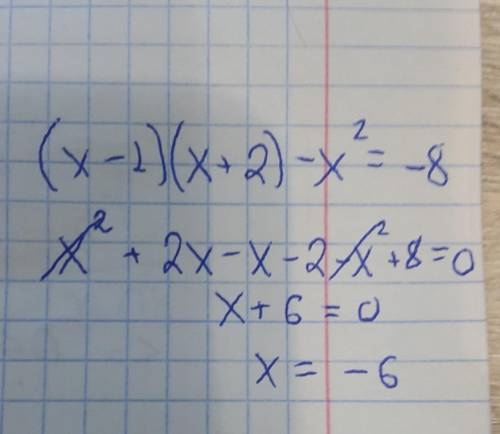 (x-1)(x+2)-x²=-8
x²+2x-x-2-x²+8=0
x+6=0
x=-6